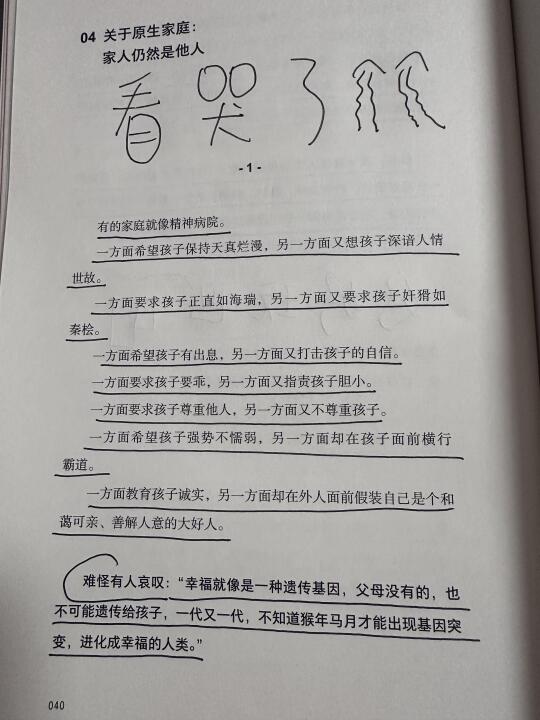 04 关于原生家庭：
家人仍然是他人
看哭了
-1-
有的家庭就像精神病院。
一方面希望孩子保持天真烂漫，另一方面又想孩子深谙人情
世故。
一方面要求孩子正直如海瑞，另一方面又要求孩子奸猾如
秦桧。
一方面希望孩子有出息，另一方面又打击孩子的自信。
一方面要求孩子要乖，另一方面又指责孩子胆小。
一方面要求孩子尊重他人，另一方面又不尊重孩子。
一方面希望孩子强势不懦弱，另一方面却在孩子面前横行
霸道。
一方面教育孩子诚实，另一方面却在外人面前假装自己是个和
蔼可亲、善解人意的大好人。
难怪有人哀叹：“幸福就像是一种遗传基因，父母没有的，也
不可能遗传给孩子，一代又一代，不知道猴年马月才能出现基因突
变，进化成幸福的人类。”
040